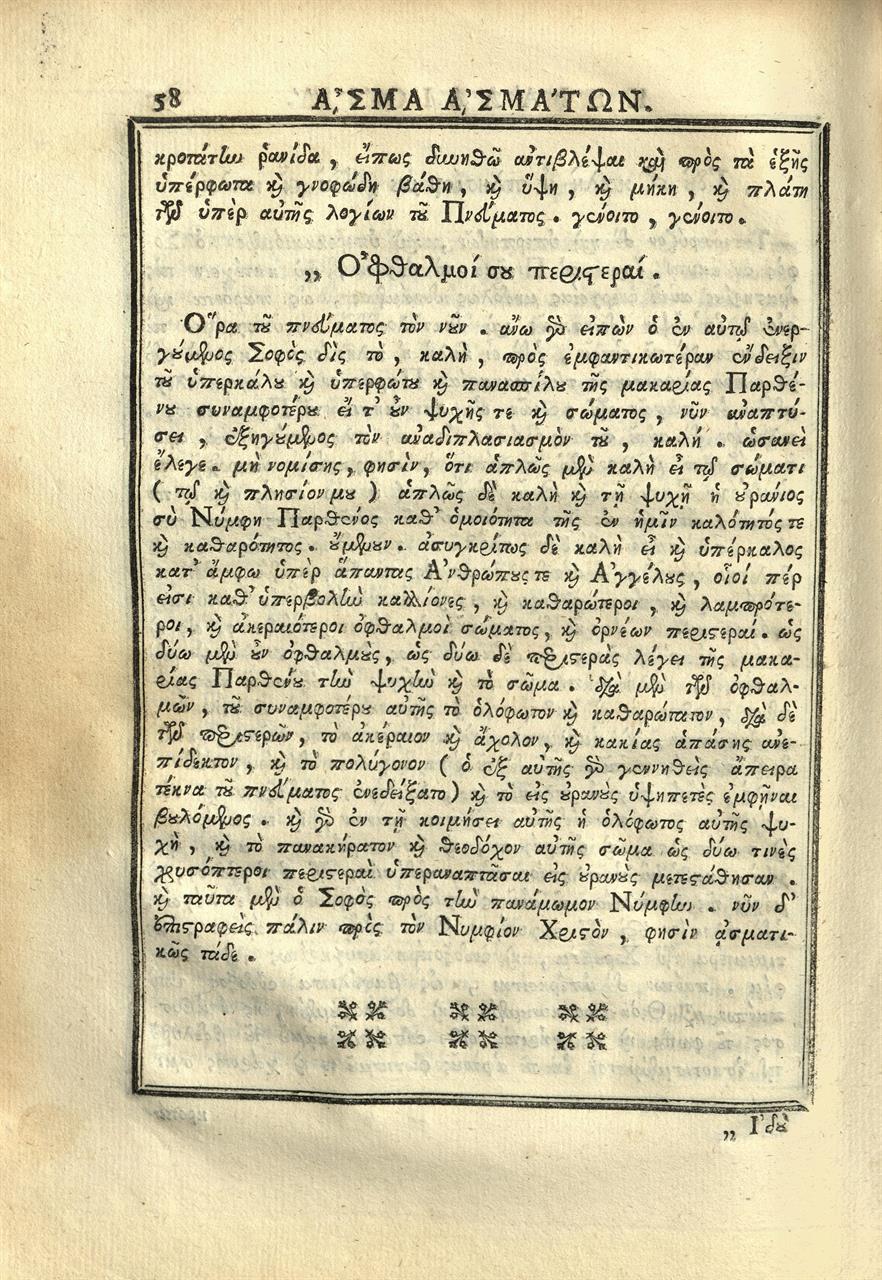 58 ΑἾΣΜΑ ΑἸΣΜΆΤΩΝ.
κροτάτην ῥανίδα, εἴπως δυνηθῶ ἀντιβλέψαι καὶ πρὸς τὰ ἑξῆς
ὑπέρφωτα καὶ γνοφώδη βάθη, καὶ ὕψη, καὶ μήκη, καὶ πλάτη
τῶν ὑπὲρ αὐτῆς λογίων τοῦ Πνεύματος. γένοιτο, γένοιτο.
„ Ὀφθαλμοί σου περιστεραί.
Ὅρα τοῦ πνεύματος τὸν νοῦν. ἄνω γὰρ εἰπὼν ὁ ἐν αὐτῷ ἐνερ-
γούμενος Σοφὸς δὶς τὸ, καλὴ, πρὸς ἐμφαντικωτέραν ἔνδειξιν
τοῦ ὑπερκάλου καὶ ὑπερφώτου καὶ πανασπίλου τῆς μακαρίας Παρθέ-
νου συναμφοτέρου εἴτ' οὖν ψυχῆς τε καὶ σώματος, νῦν ἀναπτύ-
σει, ἐξηγούμενος τὸν ἀναδιπλασιασμὸν τοῦ, καλή. ὡσανεὶ
ἔλεγε. μὴ νομίσῃς, φησὶν, ὅτι ἁπλῶς μὲν καλὴ εἶ τῷ σώματι
( τῷ καὶ πλησίον μου ) ἁπλῶς δὲ καλὴ καὶ τῇ ψυχῇ ἡ οὐράνιος
σὺ Νύμφη Παρθένος καθ' ὁμοιότητα τῆς ἐν ἡμῖν καλότητός τε
καὶ καθαρότητος. οὔμενουν. ἀσυγκρίτως δὲ καλὴ εἶ καὶ ὑπέρκαλος
κατ' ἄμφω ὑπὲρ ἅπαντας Ἀνθρώπους τε καὶ Ἀγγέλους, οἷοί πέρ
εἰσι καθ' ὑπερβολὴν καλλίονες, καὶ καθαρώτεροι, καὶ λαμπρότε-
ροι, καὶ ἀκεραιότεροι ὀφθαλμοὶ σώματος, καὶ ὀρνέων περιστεραί. ὡς
δύω μὲν οὖν ὀφθαλμοὺς, ὡς δύω δὲ περιστερὰς λέγει τῆς μακα-
ρίας Παρθένου τὴν ψυχὴν καὶ τὸ σῶμα. διὰ μὲν τῶν ὀφθαλ-
μῶν, τοῦ συναμφοτέρου αὐτῆς τὸ ὁλόφωτον καὶ καθαρώτατον, διὰ δὲ
τῶν περιστερῶν, τὸ ἀκέραιον καὶ ἄχολον, καὶ κακίας ἁπάσης ἀνε-
πίδεκτον, καὶ τὸ πολύγονον ( ὁ ἐξ αὐτῆς γὰρ γεννηθεὶς ἄπειρα
τέκνα τοῦ πνεύματος ἐνεδείξατο ) καὶ τὸ εἰς οὐρανοὺς ὑψηπετὲς ἐμφῆναι
βουλόμενος. καὶ γὰρ ἐν τῇ κοιμήσει αὐτῆς ἡ ὁλόφωτος αὐτῆς ψυ-
χὴ, καὶ τὸ πανακήρατον καὶ θεοδόχον αὐτῆς σῶμα ὡς δύω τινὲς
χρυσόπτεροι περιστεραὶ ὑπεραναπτᾶσαι εἰς οὐρανοὺς μετεστάθησαν.
καὶ ταῦτα μὲν ὁ Σοφὸς πρὸς τὴν πανάμωμον Νύμφην. νῦν δ'
ἐπιστραφεὶς πάλιν πρὸς τὸν Νυμφίον Χριστὸν, φησὶν ᾀσματι-
κῶς τάδε.
„ Ἰδοὺ